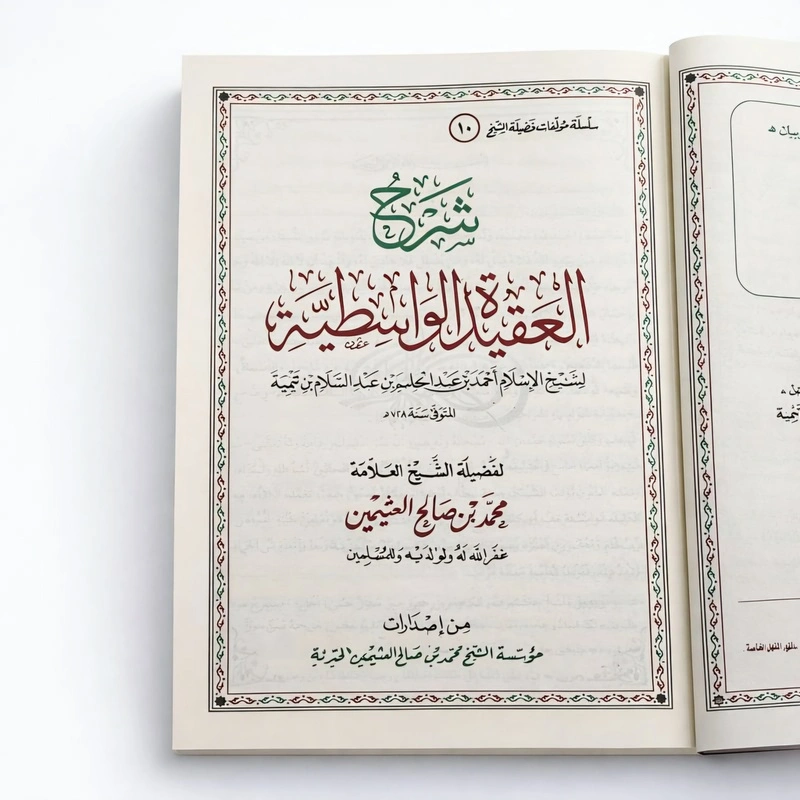 سلسلة مؤلفات فضيلة الشيخ ١٠
شَرْحُ
العَقِيدَةِ الوَاسِطِيَّةِ
لِشَيْخِ الإِسْلَامِ أَحْمَدَ بْنِ عَبْدِ الحَلِيمِ بْنِ عَبْدِ السَّلَامِ بْنِ تَيْمِيَّةَ
المتوفى سنة ٧٢٨ هـ
لفَضِيلَة الشَّيْخ العَلَّامَة
محمَّد بْن صَالح العثيمين
غفَر اللَّه لَهُ ولوالدَيْه وَللمُسْلِمِين
مِن إصْدَارات
مؤسّسة الشيخ محمّد بن صَالح العثيمين الخيرية
تَيْمِيَّة